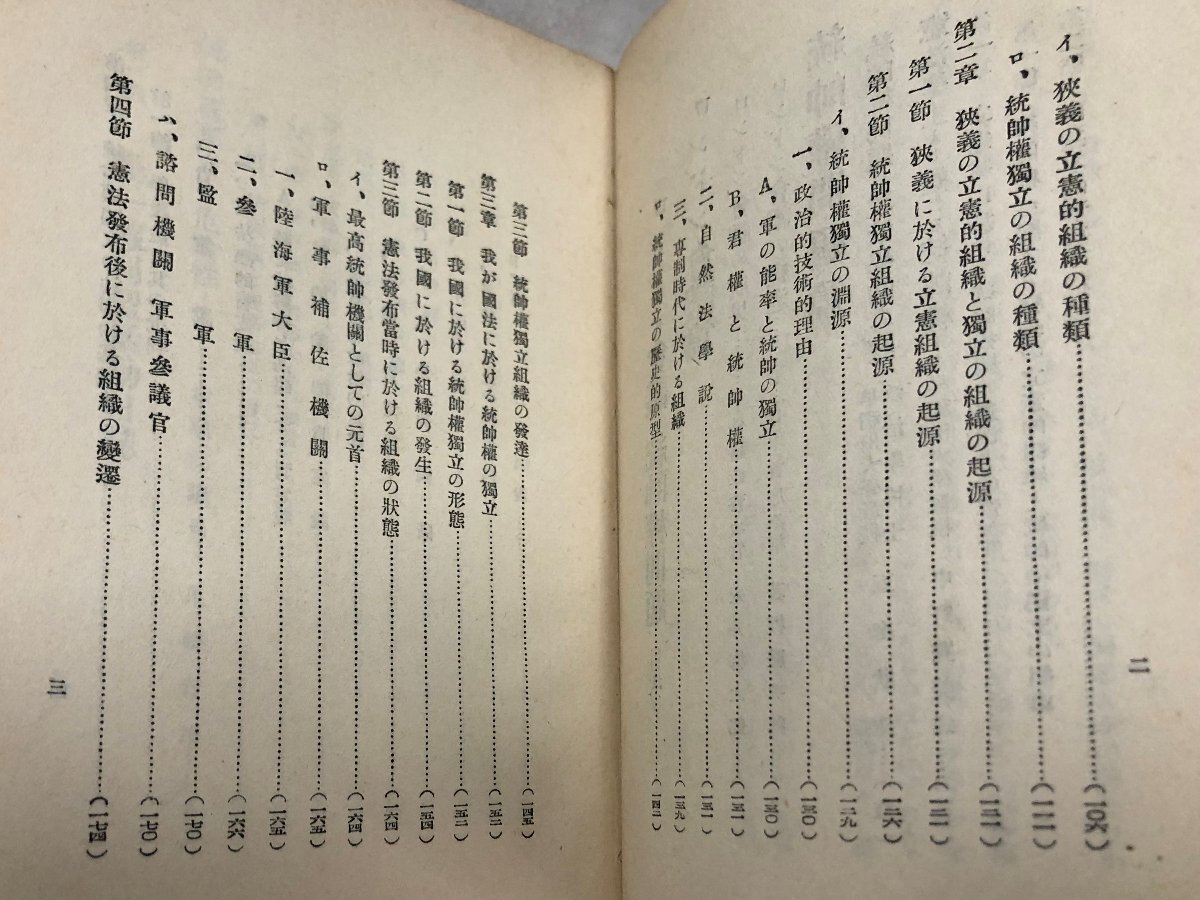 イ、狹義の立憲的組織の種類……(一〇六)
ロ、統帥權獨立の組織の種類……(一一一)
第二章 狹義の立憲的組織と獨立の組織の起源……(一二一)
第一節 狹義に於ける立憲組織の起源……(一二一)
第二節 統帥權獨立組織の起源……(一二六)
イ、統帥權獨立の淵源……(一二九)
一、政治的技術的理由……(一三〇)
A、軍の能率と統帥の獨立……(一三〇)
B、君權と統帥權……(一三一)
二、自然法學說……(一三一)
三、專制時代に於ける組織……(一三九)
ロ、統帥權獨立の歷史的原型……(一四二)
二
第三節 統帥權獨立組織の發達……(一四五)
第三章 我が國法に於ける統帥權の獨立……(一五二)
第一節 我國に於ける統帥權獨立の形態……(一五二)
第二節 我國に於ける組織の發生……(一五四)
第三節 憲法發布當時に於ける組織の狀態……(一六四)
イ、最高統帥機關としての元首……(一六四)
ロ、軍事補佐機關……(一六五)
一、陸海軍大臣……(一六五)
二、參軍……(一六六)
三、監軍……(一七〇)
ハ、諮問機關 軍事參議官……(一七〇)
第四節 憲法發布後に於ける組織の變遷……(一七四)
三